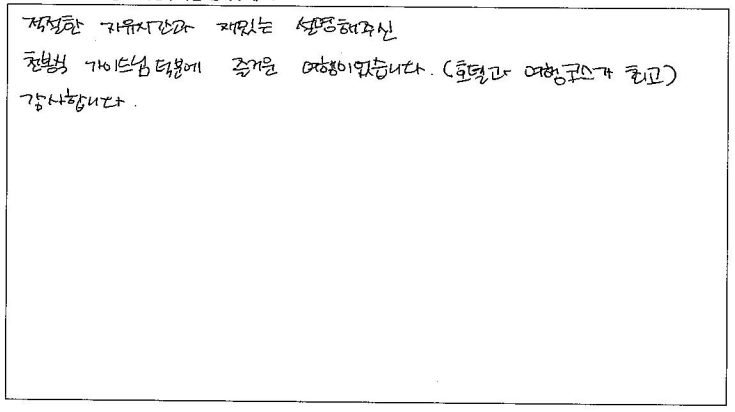 적절한 자유시간과 재밌는 설명해주신
천봉식 가이드님 덕분에 즐거운 여행이었습니다. (호텔과 여행코스가 최고)
감사합니다.